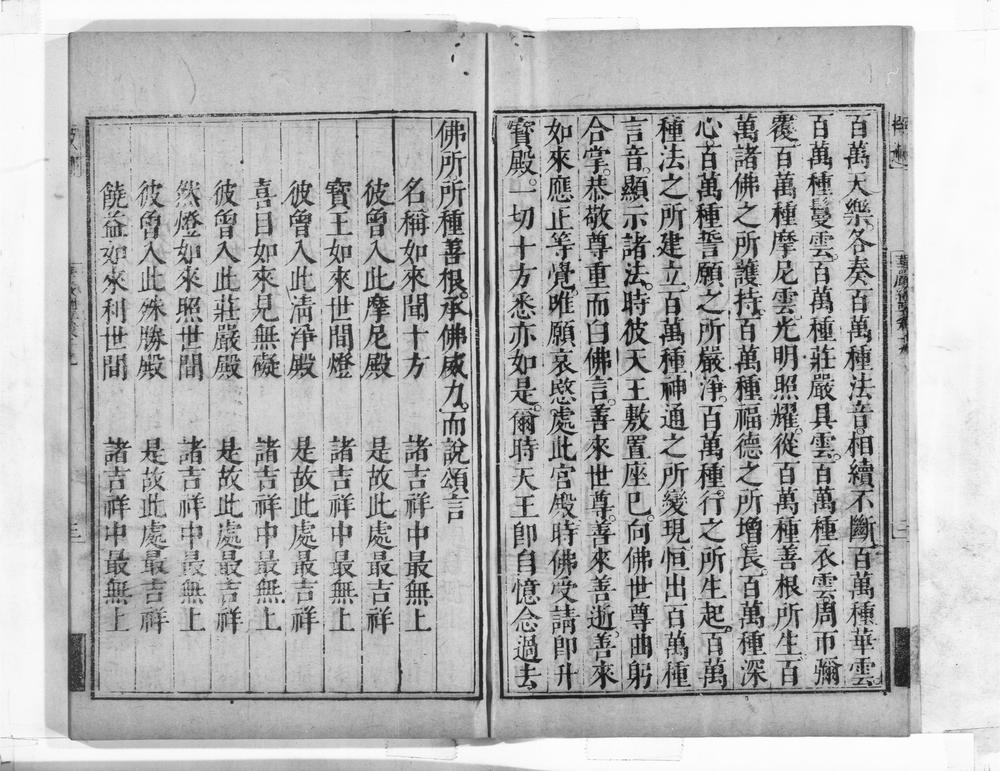 百萬天樂。各奏百萬種法音。相續不斷。百萬種華雲
百萬種鬘雲。百萬種莊嚴具雲。百萬種衣雲周帀彌
覆百萬種摩尼雲。光明照耀。從百萬種善根所生。百
萬諸佛之所護持。百萬種福德之所增長。百萬種深
心。百萬種誓願之所嚴淨。百萬種行之所生起。百萬
種法之所建立。百萬種神通之所變現。恒出百萬種
言音。顯示諸法。時彼天王敷置座已。向佛世尊曲躬
合掌。恭敬尊重而白佛言。善來世尊。善來善逝。善來
如來應正等覺。唯願哀愍處此宮殿。時佛受請即升
寶殿。一切十方悉亦如是。爾時天王即自憶念過去
佛所所種善根。承佛威力。而說頌言
名稱如來聞十方　諸吉祥中最無上
彼曾入此摩尼殿　是故此處最吉祥
寶王如來世間燈　諸吉祥中最無上
彼曾入此清淨殿　是故此處最吉祥
喜目如來見無礙　諸吉祥中最無上
彼曾入此莊嚴殿　是故此處最吉祥
然燈如來照世間　諸吉祥中最無上
彼曾入此殊勝殿　是故此處最吉祥
饒益如來利世間　諸吉祥中最無上
二
三